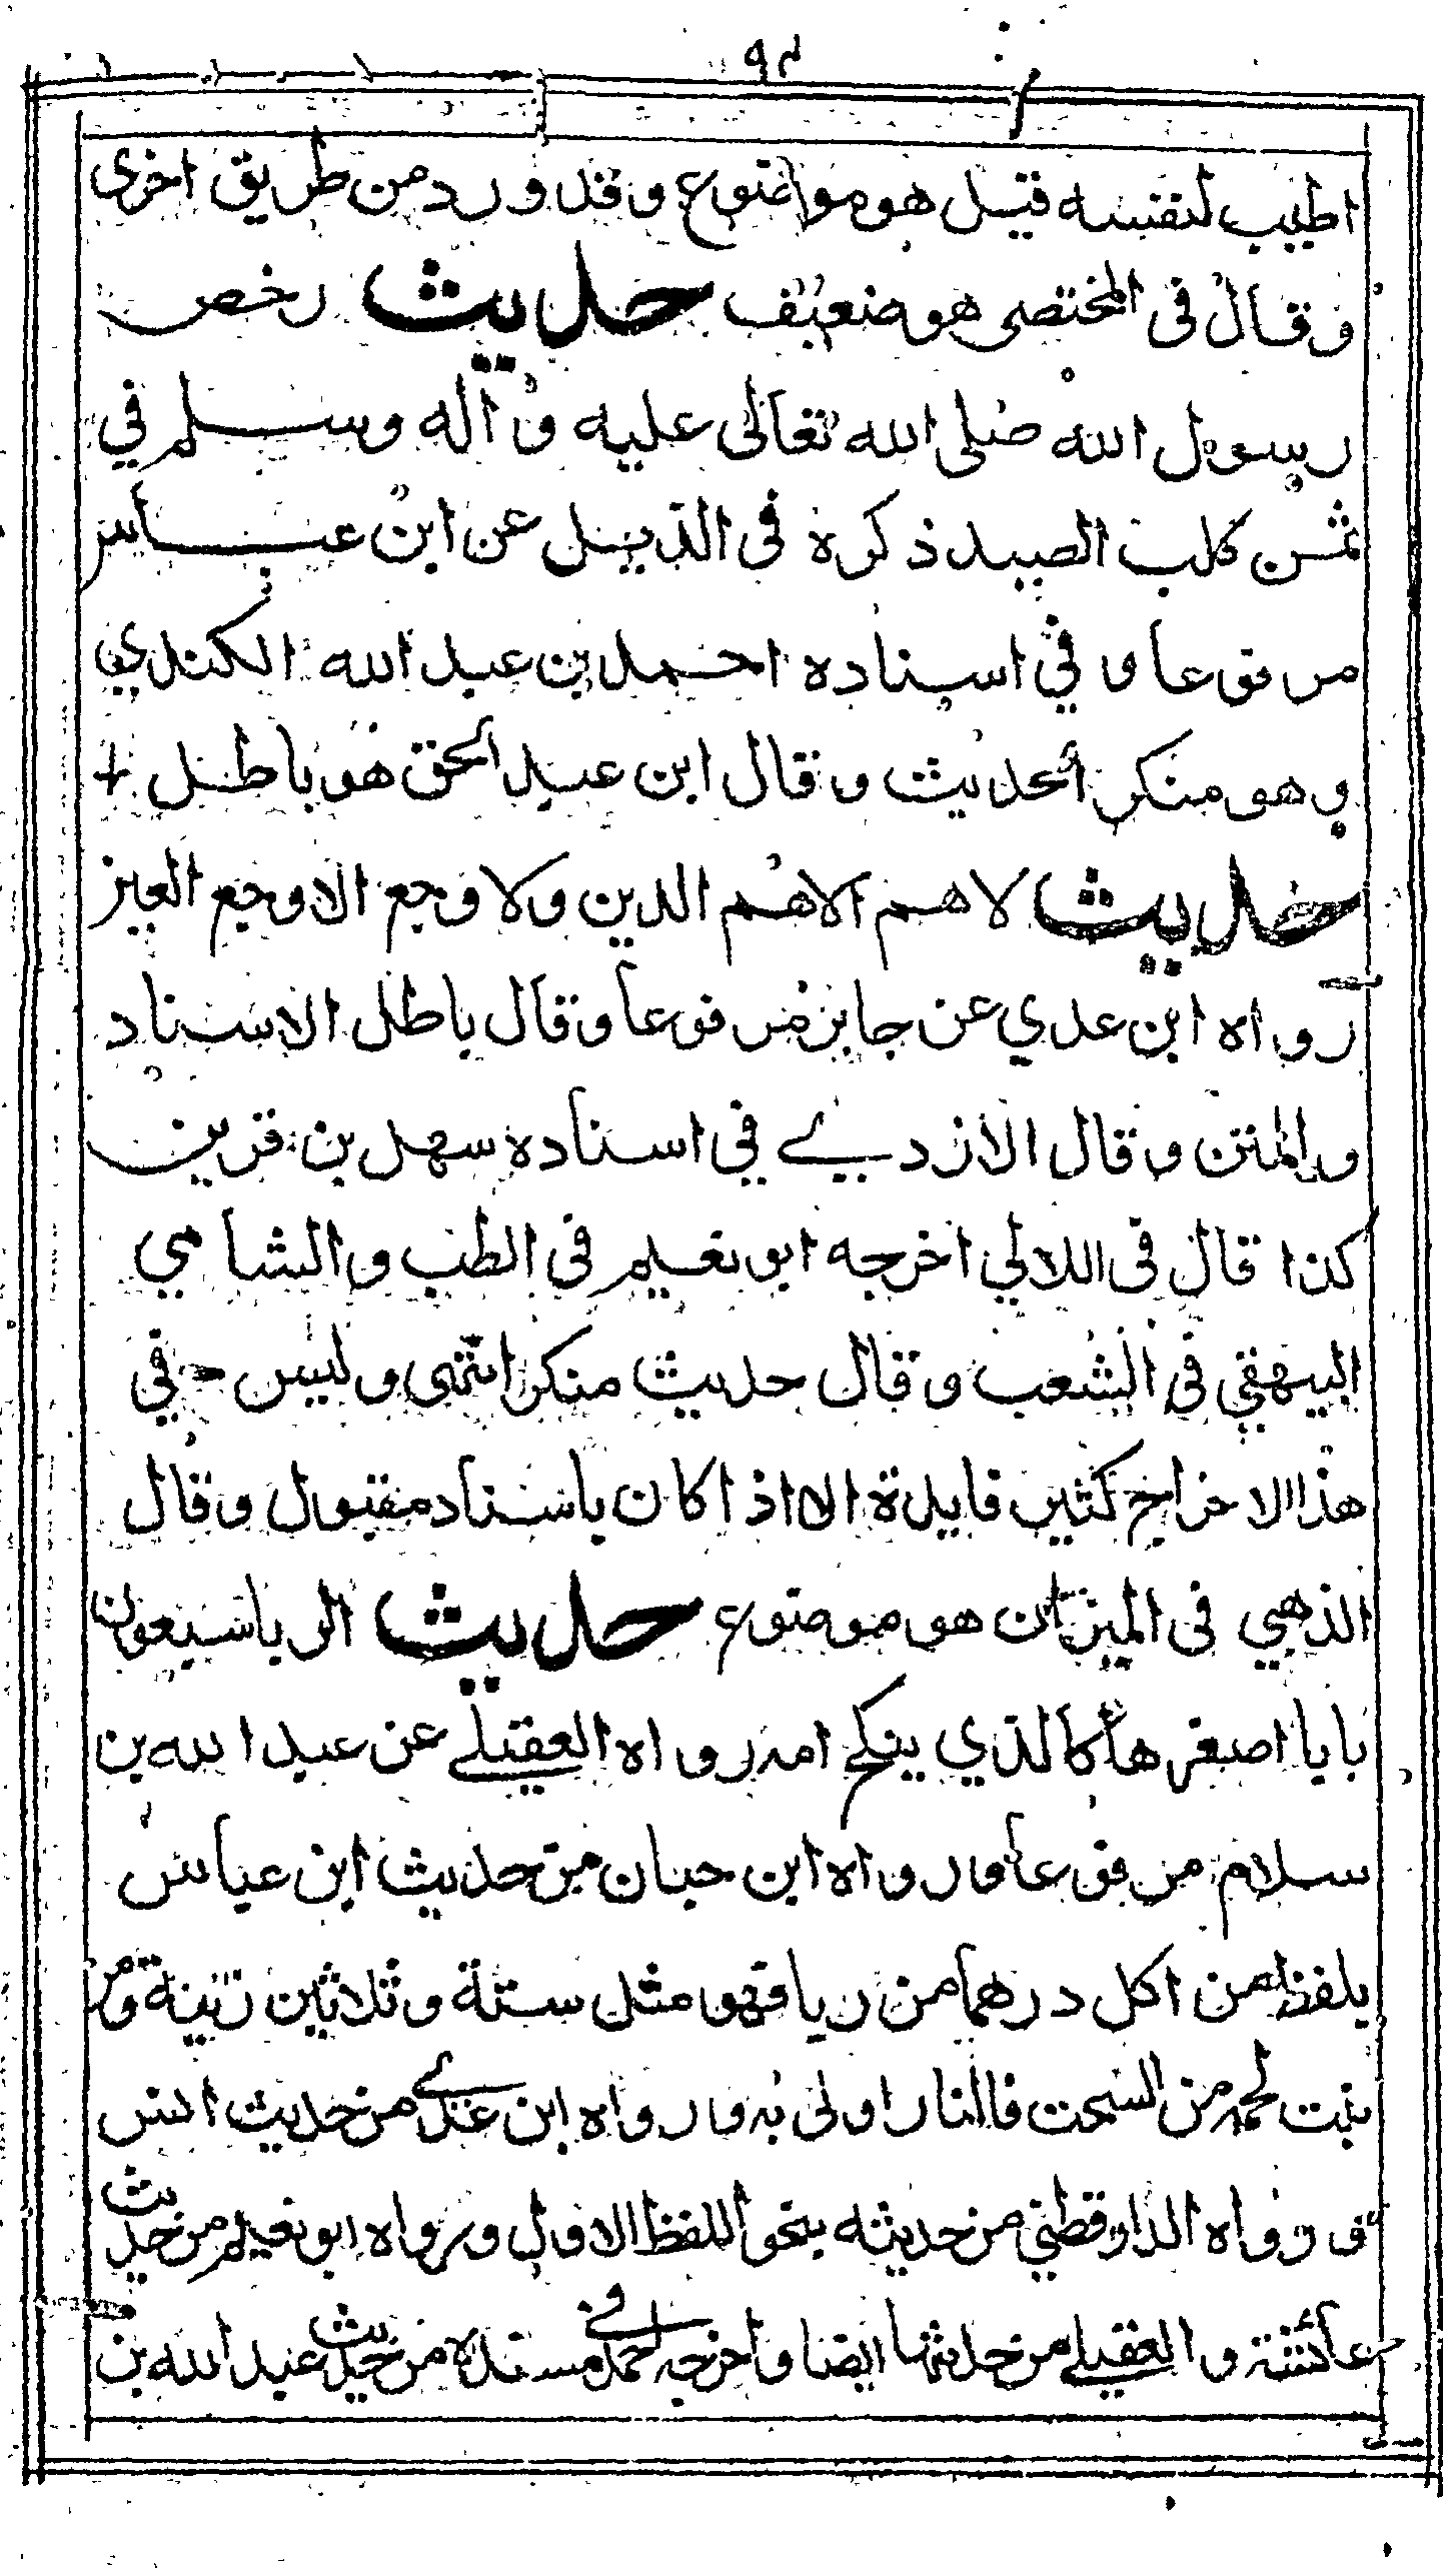 ٩٣
اطيب لنفسه قيل هو موضوع وقد ورد من طريق اخرى
وقال فى المختصر هو ضعيف حديث رخص
رسول الله صلى الله تعالى عليه وآله وسلم في
ثمن كلب الصيد ذكره فى الذيل عن ابن عباس
مرفوعا وفي اسناده احمد بن عبد الله الكندي
وهو منكر الحديث وقال ابن عبد الحق هو باطل
حديث لا هم الا هم الدين ولا وجع الا وجع العين
رواه ابن عدي عن جابر مرفوعا وقال باطل الاسناد
والمتن وقال الازدي في اسناده سهل بن قرين
كذا قال فى اللالي اخرجه ابو نعيم فى الطب والشامي
البيهقي فى الشعب وقال حديث منكر انتهى وليس في
هذا الاخراج كثير فايدة الا اذا كان باسناد مقبول وقال
الذهبي فى الميزان هو موضوع حديث الربا سبعون
بابا اصغرها كالذي ينكح امه رواه العقيلي عن عبد الله بن
سلام مرفوعا ورواه ابن حبان من حديث ابن عباس
بلفظ من اكل درهما من ربا فهو مثل ستة وثلاثين زنية ومن
نبت لحمه من السحت فالنار اولى به ورواه ابن عدي من حديث انس
ورواه الدارقطني من حديثه بنحو اللفظ الاول ورواه ابو نعيم من حديث
عائشة والعقيلي من حديثها ايضا واخرجه احمد في مسنده من حديث عبد الله بن